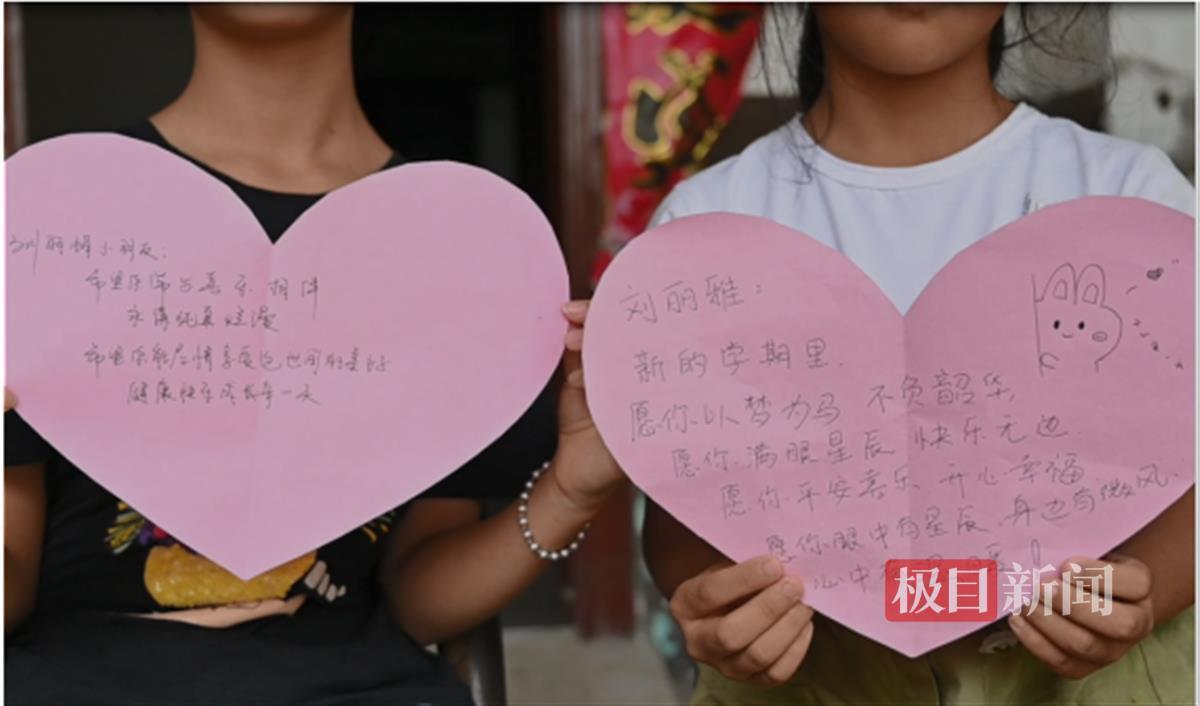 刘丽小朋友：
希望你常与喜乐相伴
永葆纯真烂漫
希望你能尽情享受这世间的美好
健康快乐成长每一天
刘丽雅：
新的学期里.
愿你以梦为马 不负韶华,
愿你满眼星辰 快乐无边.
愿你平安喜乐 开心幸福
愿你眼中有星辰,身边有微风.
心中！
极目新闻